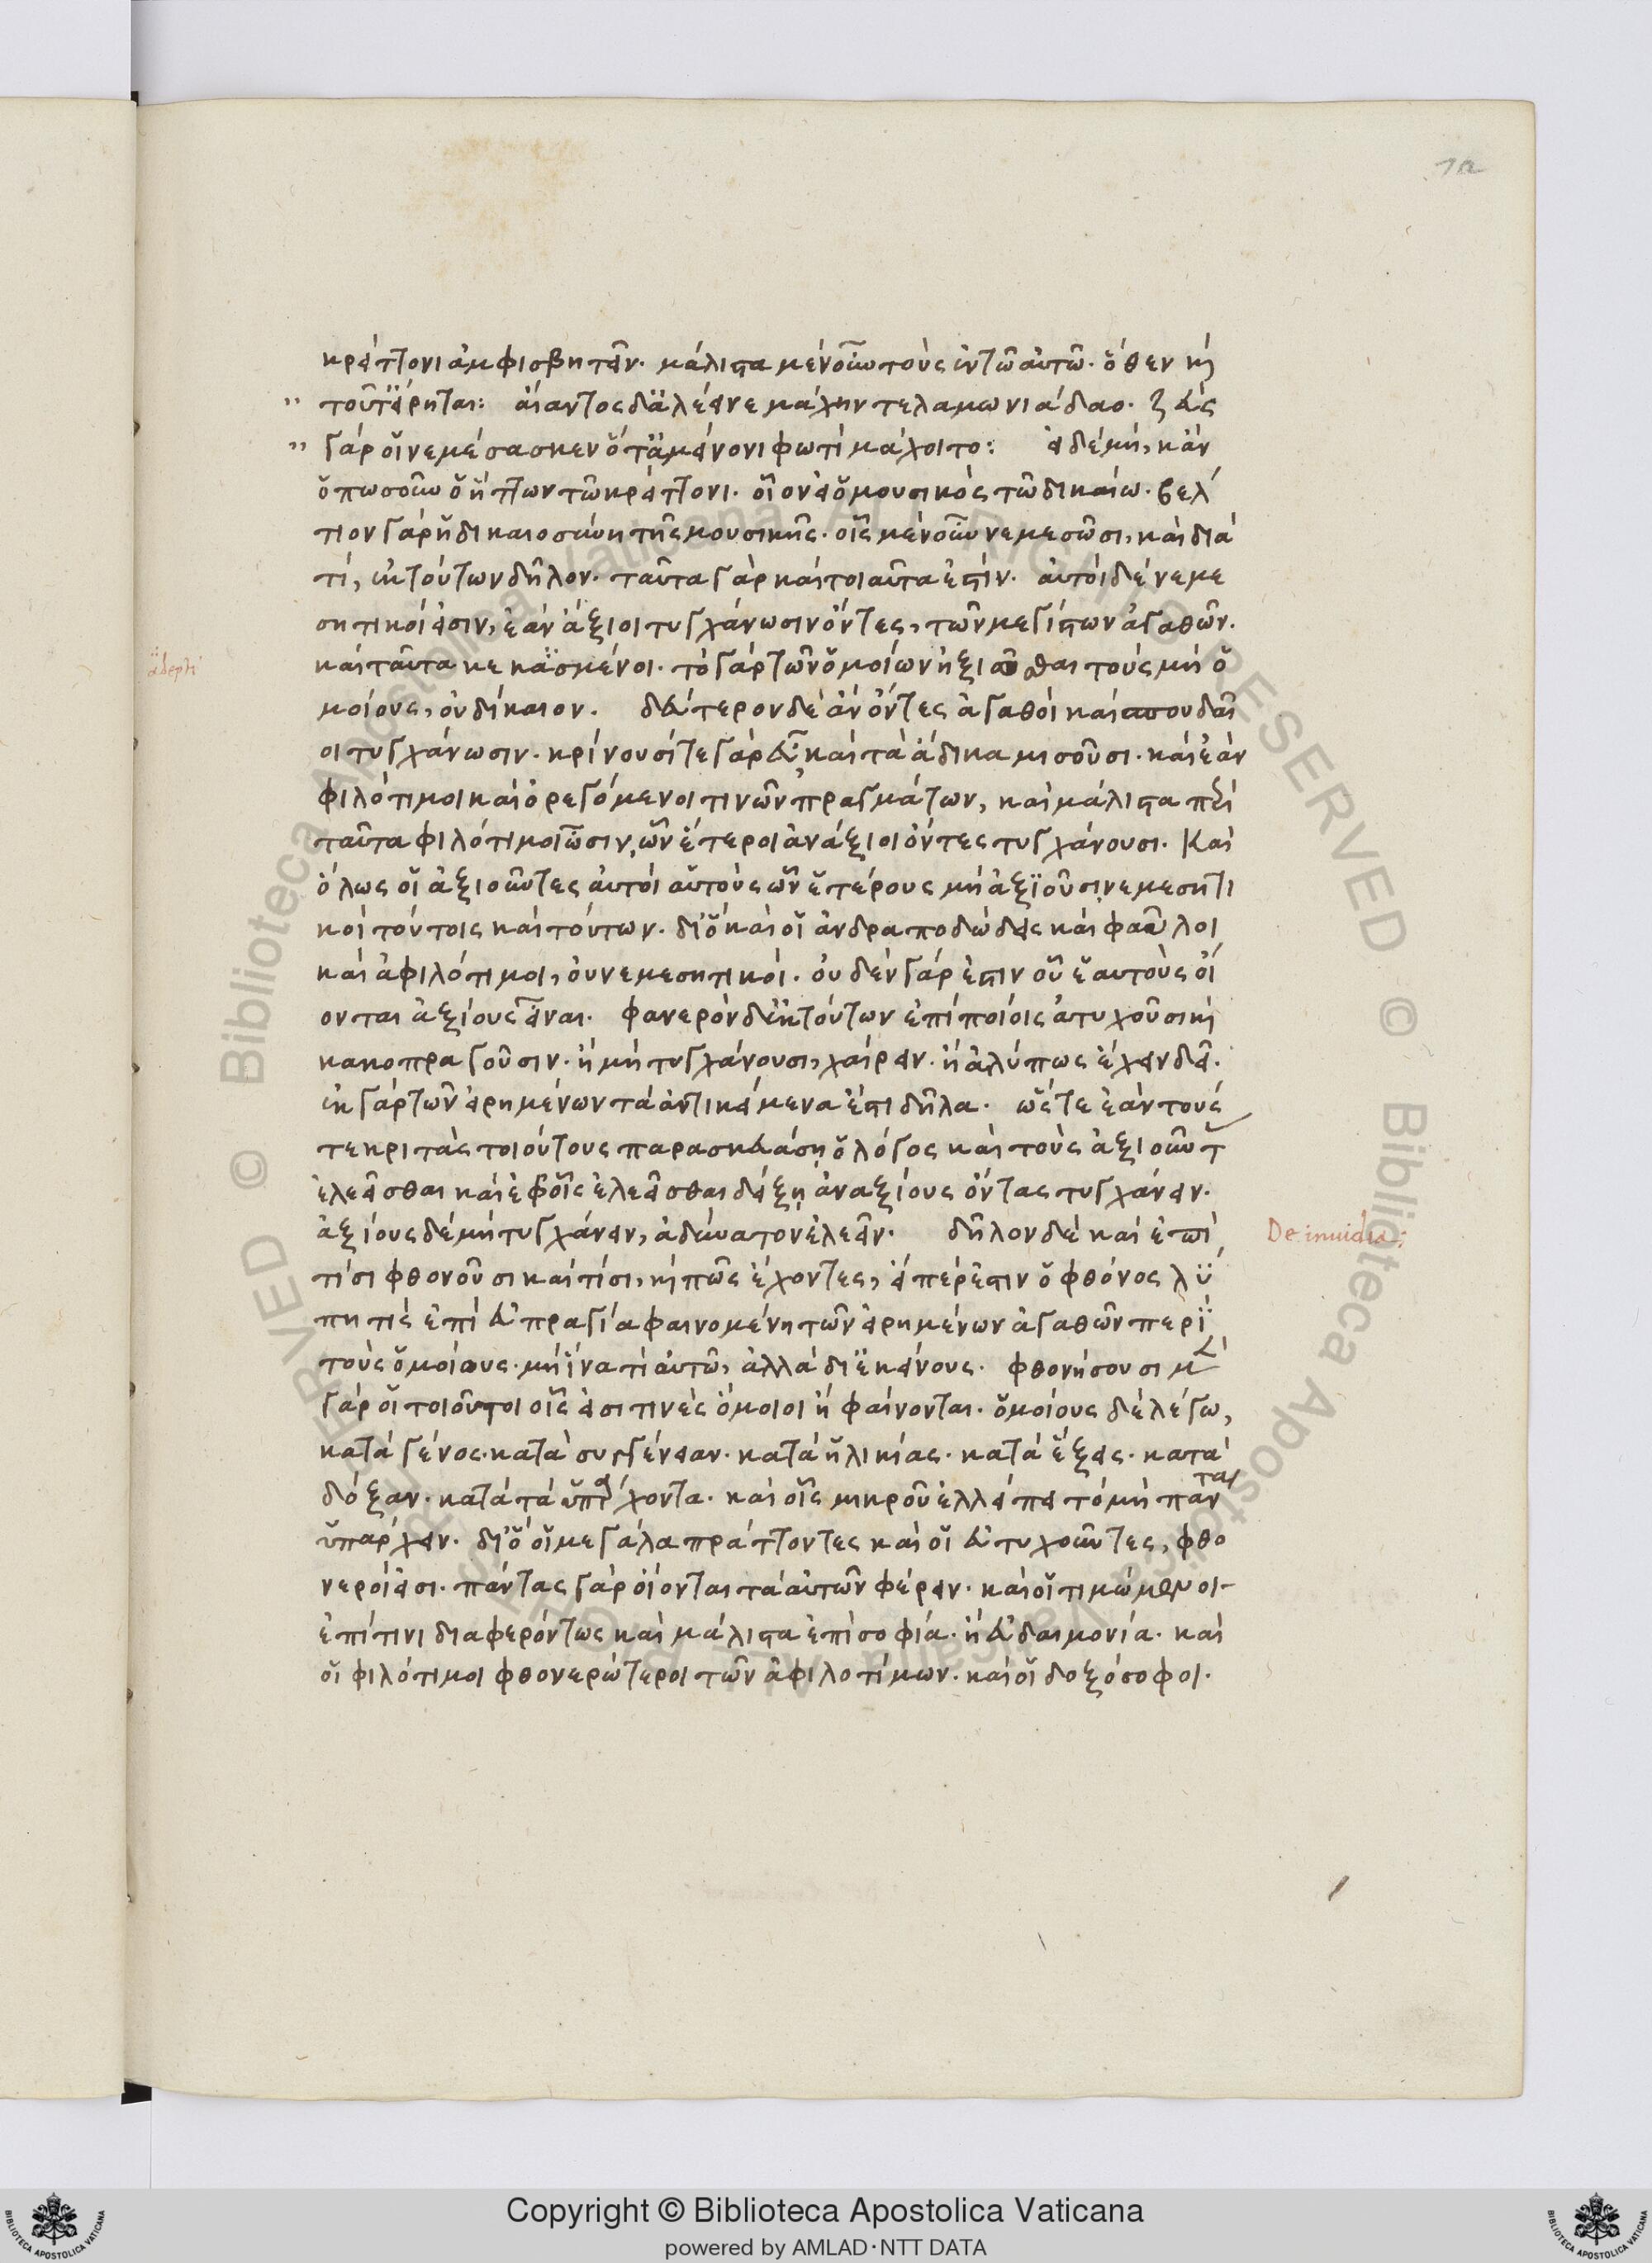 κρείττονι ἀμφισβητεῖν· μάλιστα μὲν οὖν τοὺς ἐν τῶ αὐτῶ· ὅθεν καὶ
τοῦτ' εἴρηται: αἴαντος δ' ἀλέεινε μάχην τελαμωνιάδαο· ζεὺς
γάρ οἱ νεμέσασκεν ὅτ' ἀμείνονι φωτὶ μάχοιτο: εἰ δὲ μὴ, κἂν
ὁπωσοῦν ὁ ἥττων τῶ κρείττονι· οἷον εἰ ὁ μουσικὸς τῶ δικαίω· βελ
τιον γὰρ ἡ δικαιοσύνη τῆς μουσικῆς· οἷς μὲν οὖν νεμεσῶσι, καὶ διὰ
τί, ἐκ τούτων δῆλον· ταῦτα γὰρ καὶ τοιαῦτα ἐστίν· αὐτοὶ δὲ νεμε
σητικοί εἰσιν, ἐὰν ἄξιοι τυγχάνωσιν ὄντες, τῶν μεγίστων ἀγαθῶν·
καὶ ταῦτα κεκτημένοι· τὸ γὰρ τῶν ὁμοίων ἠξιῶσθαι τοὺς μὴ ὁ
μοίους, οὐ δίκαιον· δεύτερον δὲ ἂν ὄντες ἀγαθοὶ καὶ σπουδαῖ
οι τυγχάνωσιν· κρίνουσί τε γὰρ εὖ, καὶ τὰ ἄδικα μισοῦσι· καὶ ἐὰν
φιλότιμοι καὶ ὀρεγόμενοι τινῶν πραγμάτων, καὶ μάλιστα περὶ
ταῦτα φιλότιμοι ὦσιν, ὧν ἕτεροι ἀνάξιοι ὄντες τυγχάνουσι. Καὶ
ὅλως οἱ ἀξιοῦντες αὐτοὶ αὑτοὺς ὧν ἑτέρους μὴ ἀξιοῦσι, νεμεσητι
κοὶ τούτοις καὶ τούτων· διὸ καὶ οἱ ἀνδραποδώδεις καὶ φαῦλοι
καὶ ἀφιλότιμοι, οὐ νεμεσητικοί· οὐδὲν γὰρ ἐστιν οὗ ἑαυτοὺς οἴ
ονται ἀξίους εἶναι· φανερὸν δ' ἐκ τούτων ἐπὶ ποίοις ἀτυχοῦσι καὶ
κακοπραγοῦσιν· ἢ μὴ τυγχάνουσι, χαίρειν· ἢ ἀλύπως ἔχειν δεῖ·
ἐκ γὰρ τῶν εἰρημένων τὰ ἀντικείμενα ἐστὶ δῆλα· ὥστε ἐὰν τούς
τε κριτὰς τοιούτους παρασκευάση ὁ λόγος καὶ τοὺς ἀξιοῦντ
ἐλεεῖσθαι καὶ ἐφ' οἷς ἐλεεῖσθαι δείξη ἀναξίους ὄντας τυγχάνειν·
ἀξίους δὲ μὴ τυγχάνειν, ἀδύνατον ἐλεεῖν· δῆλον δὲ καὶ ἐπὶ
τίσι φθονοῦσι καὶ τίσι, καὶ πῶς ἔχοντες, εἴπερ ἐστιν ὁ φθόνος λύ
πη τις ἐπὶ εὐπραγία φαινομένη τῶν εἰρημένων ἀγαθῶν περὶ
τοὺς ὁμοίους· μὴ ἵνα τι αὐτῶ, ἀλλὰ δι' ἐκείνους· φθονήσουσι μὲν
γὰρ οἱ τοιοῦτοι οἷς εἰσι τινὲς ὅμοιοι ἢ φαίνονται· ὁμοίους δὲ λέγω,
κατὰ γένος· κατὰ συγγένειαν· κατὰ ἡλικίας· κατὰ ἕξεις· κατὰ
δόξαν· κατὰ τὰ ὑπάρχοντα· καὶ οἷς μικροῦ ἐλλείπει τὸ μὴ πάντα
ὑπάρχειν· διὸ οἱ μεγάλα πράττοντες καὶ οἱ εὐτυχοῦντες, φθο
νεροί εἰσι· πάντας γὰρ οἴονται τὰ αὑτῶν φέρειν· καὶ οἱ τιμώμενοι
ἐπί τινι διαφερόντως καὶ μάλιστα ἐπὶ σοφία· ἢ εὐδαιμονία· καὶ
οἱ φιλότιμοι φθονερώτεροι τῶν ἀφιλοτίμων· καὶ οἱ δοξόσοφοι·
De inuidia:
Copyright © Biblioteca Apostolica Vaticana
powered by AMLAD·NTT DATA